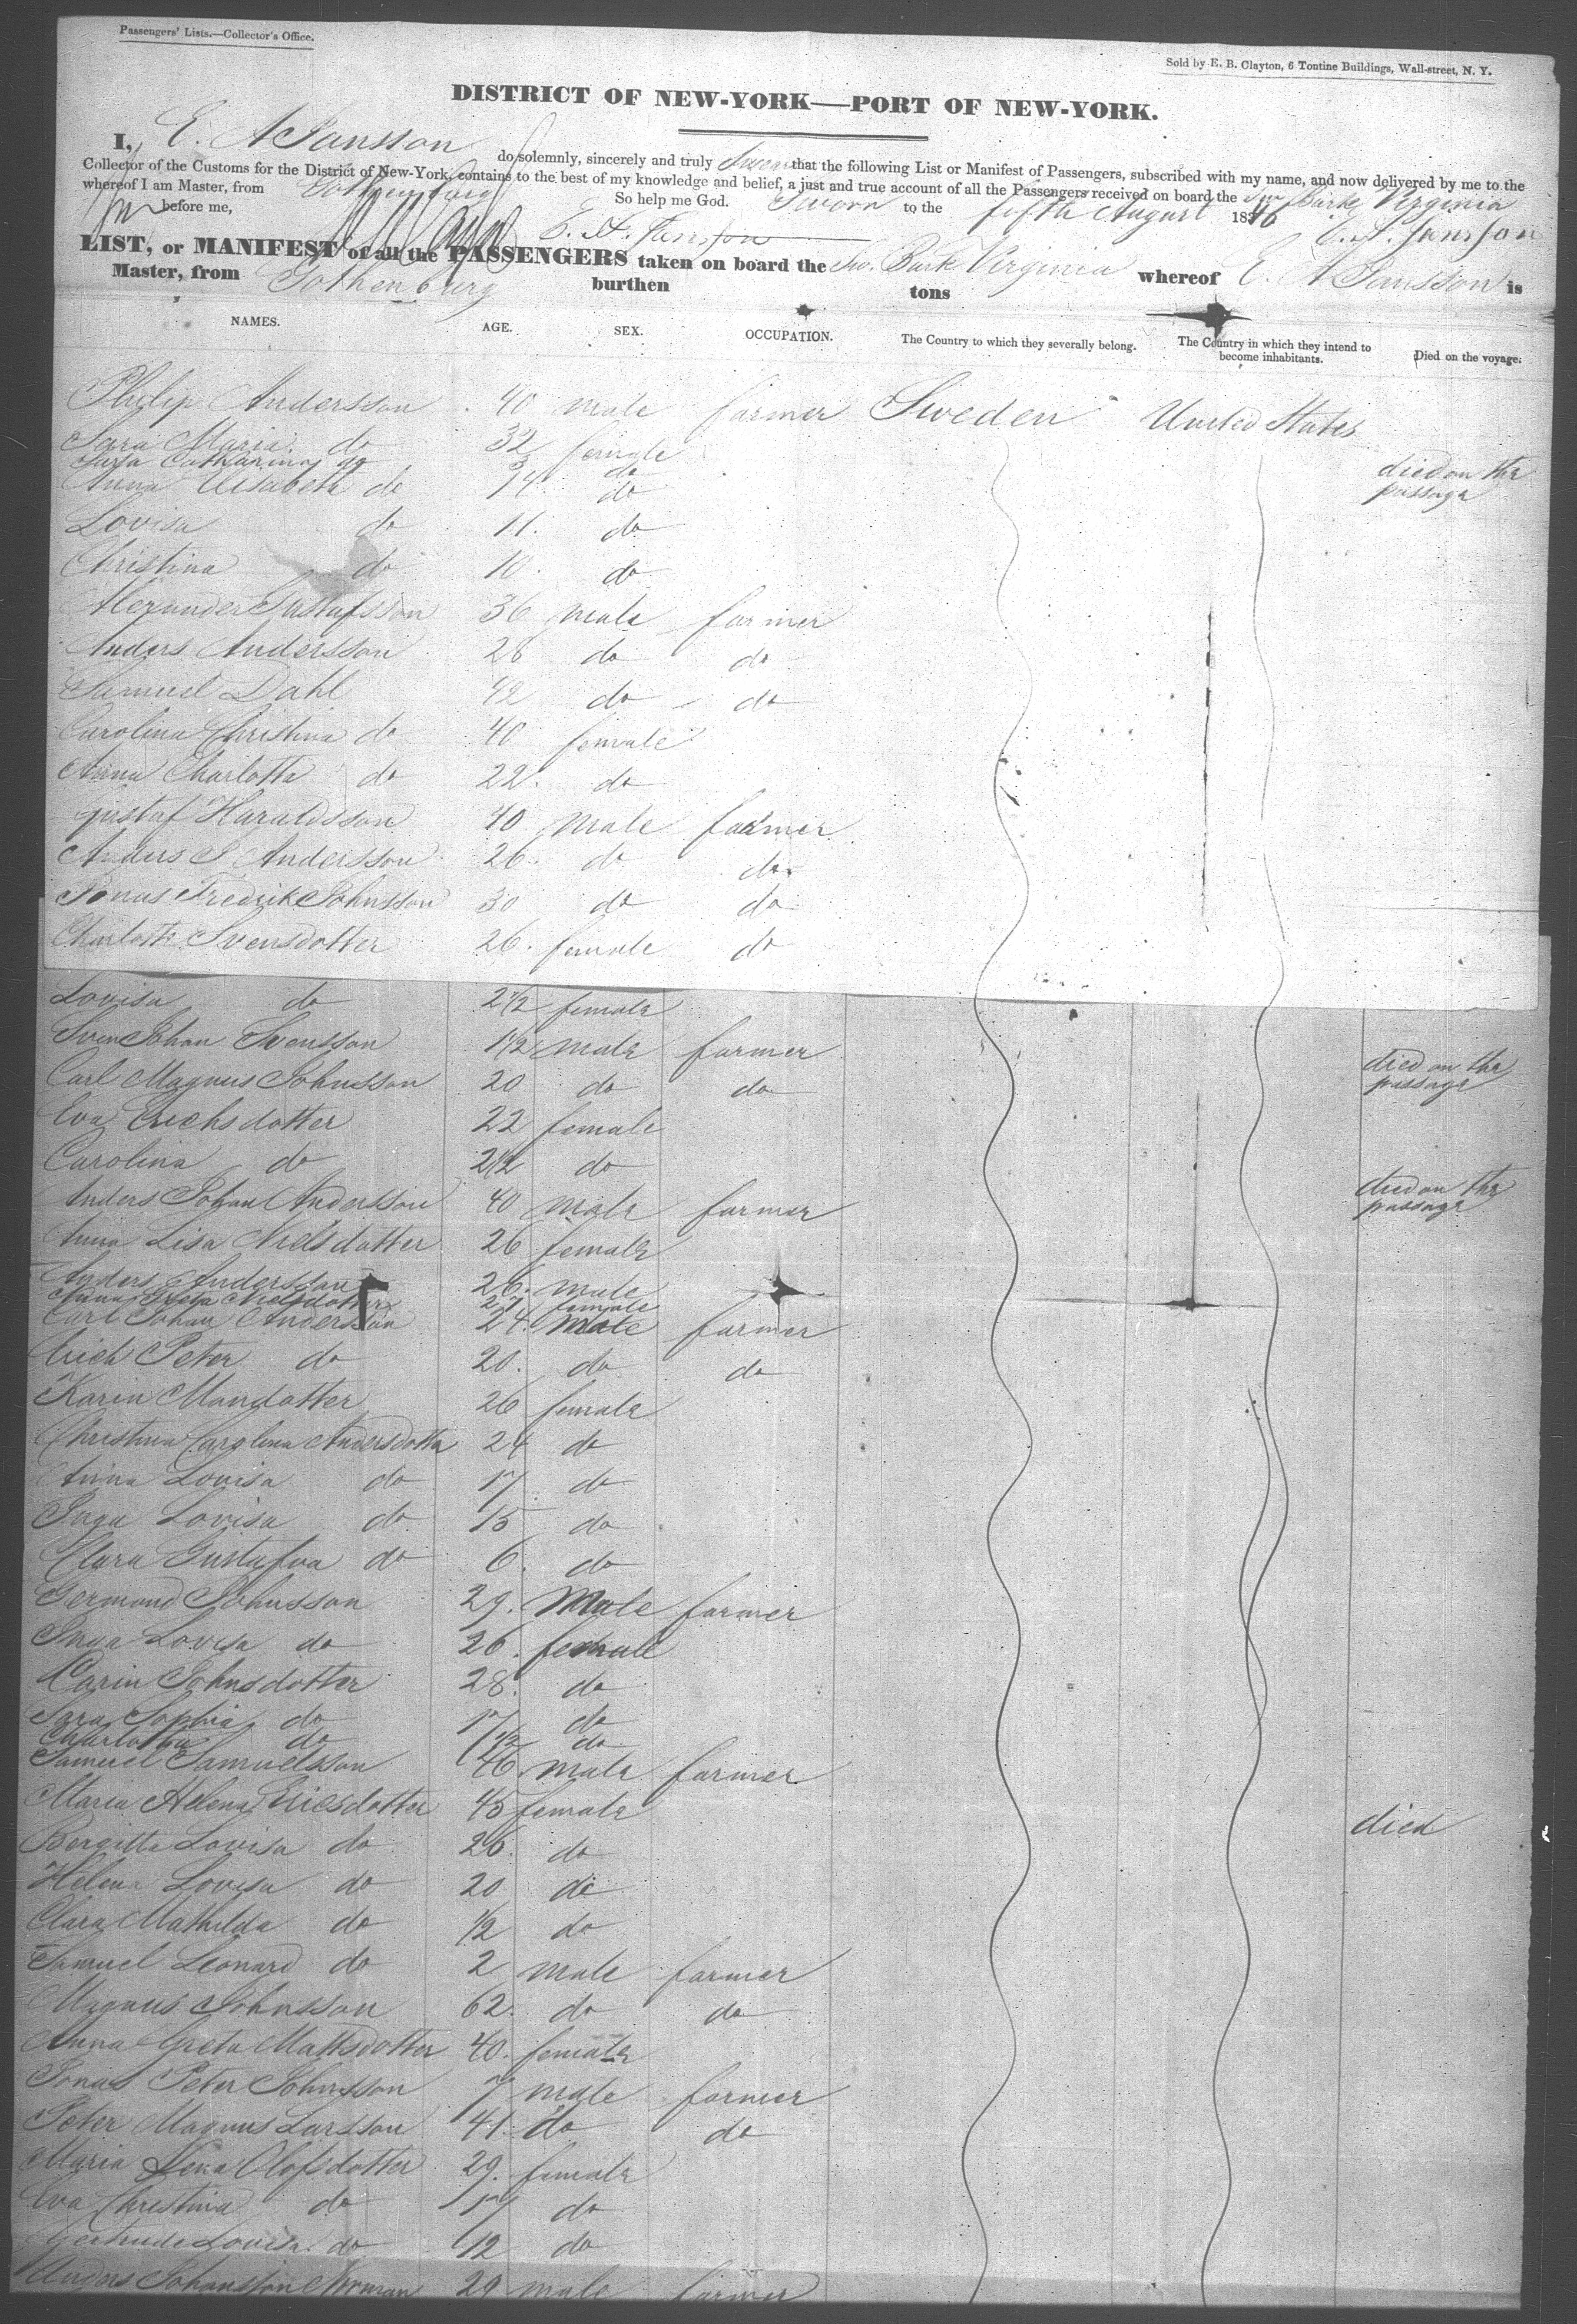 Passengers' Lists.—Collector's Office.
Sold by E. B. Clayton, 6 Tontine Buildings, Wall-street, N. Y.
DISTRICT OF NEW-YORK—PORT OF NEW-YORK.
I, E. A Jansson do solemnly, sincerely and truly Swear that the following List or Manifest of Passengers, subscribed with my name, and now delivered by me to the
Collector of the Customs for the District of New-York, contains to the best of my knowledge and belief, a just and true account of all the Passengers received on board the Sw. Bark Virginia
whereof I am Master, from Gothenburg So help me God.
Sworn to the fifth August 1846
before me, E. A. Jansson E. A. Jansson
LIST, or MANIFEST of all the PASSENGERS taken on board the Sw. Bark Virginia whereof E. A Jansson is
Master, from Gothenburg burthen tons
NAMES. AGE. SEX. OCCUPATION. The Country to which they severally belong. The Country in which they intend to become inhabitants. Died on the voyage.
Philip Andersson 40 male farmer Sweden United States
Sara Maria do 32 female
Sara Catharina do 3 do died on the passage
Anna Elisabeta do 14 do
Lovisa do 11. do
Christina do 10. do
Alexander Gustafsson 36 male farmer
Anders Andersson 28 do do
Samuel Dahl 42 do do
Carolina Christina do 40 female
Anna Charlotta do 22. do
Gustaf Haraldsson 40 male farmer
Anders P Andersson 26. do do.
Jonas Fredrik Johnsson 30 do do
Charlotte Svensdotter 26. female do
Lovisa do 2 1/2 female
Sven Johan Svensson 1 1/2 male farmer died on the passage
Carl Magnus Johnsson 20 do do
Eva Erichsdotter 22 female
Carolina do 2 1/2 do
Anders Johan Andersson 40 male farmer died on the passage
Anna Lisa Nielsdotter 26 female
Anders Andersson 26. male
Anna Greta Nielsdotter 27 female
Carl Johan Andersson 24. male farmer
Erich Peter do 20. do do
Karin Mansdotter 26 female
Christina Carolina Andersdotter 24 do
Anna Lovisa do 17 do
Inga Lovisa do 15 do
Clara Gustafva do 6. do
Germond Johnsson 29. male farmer
Inga Lovisa do 26. female
Carin Johnsdotter 28. do
Sara Sophia do 17 do
Charlotta do 1 1/2 do
Samuel Samuelsson 46. male farmer
Maria Helena Ericsdotter 45 female died
Bergitta Lovisa do 26. do
Helena Lovisa do 20 do
Clara Mathilda do 1/2 do
Samuel Leonard do 2 male farmer
Magnus Johnsson 62. do do
Anna Greta Mattsdotter 40. female
Jonas Peter Johnsson 7 male farmer
Peter Magnus Larsson 41. do do
Maria Lena Olofsdotter 29. female
Eva Christina do 17 do
Gertrude Lovisa do 12 do
Anders Johansson Norman 29 male farmer